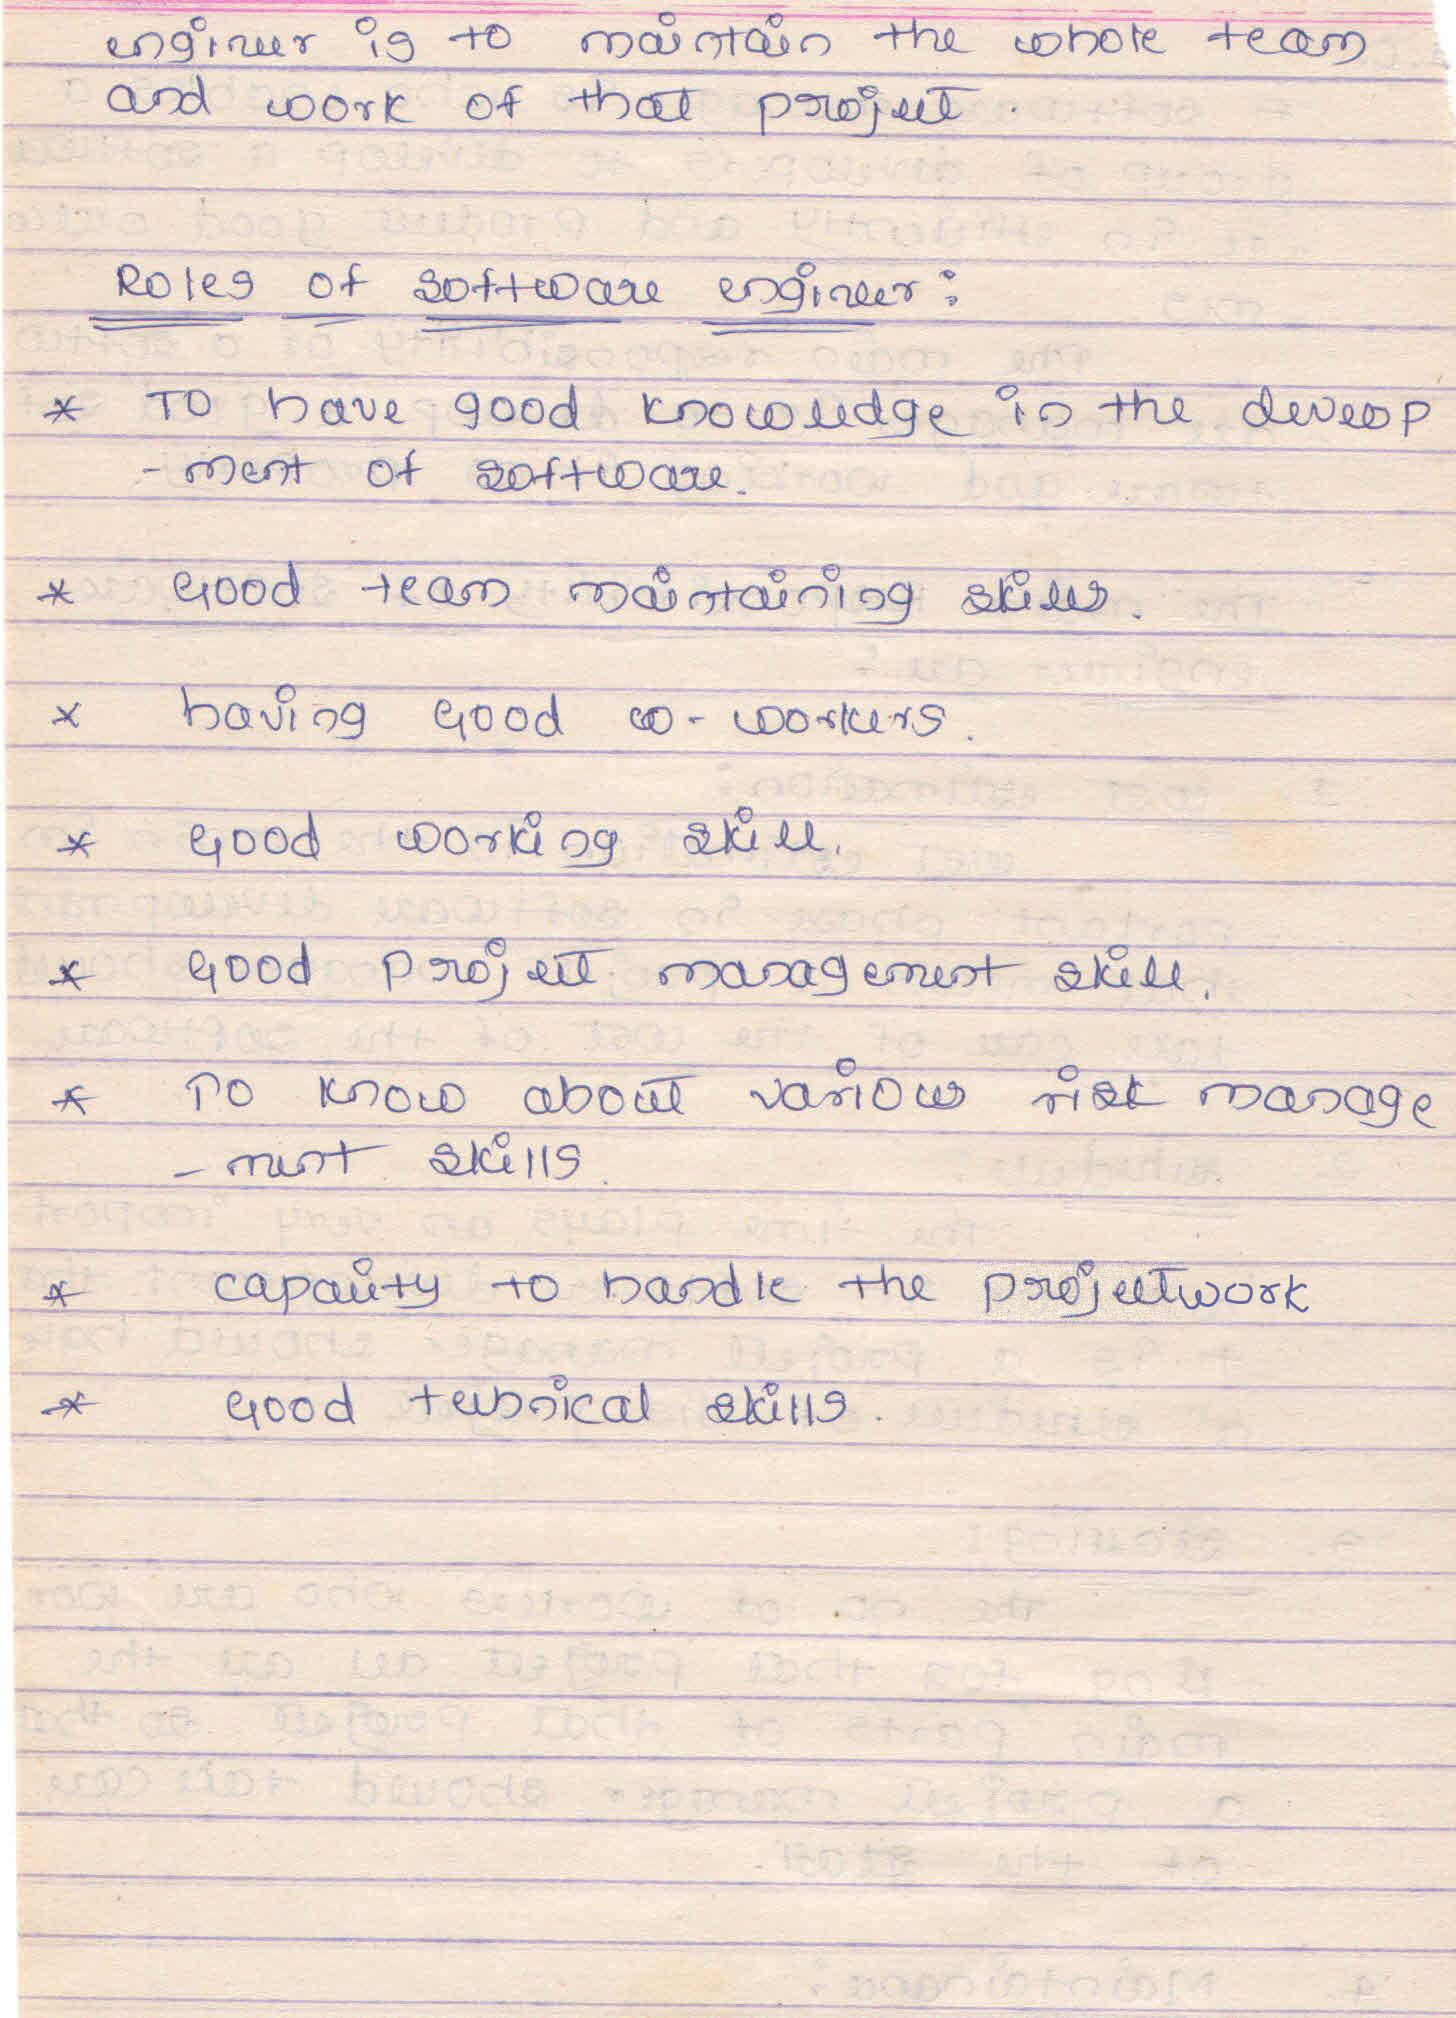 engineer is to maintain the whole team
and work of that project.
Roles of software engineer:
* To have good knowledge in the develop
-ment of software.
* Good team maintaining skills.
* having Good co-workers.
* Good working skill.
* Good project management skill.
* To know about various risk manage
-ment skills.
* capacity to handle the projectwork
* Good technical skills.